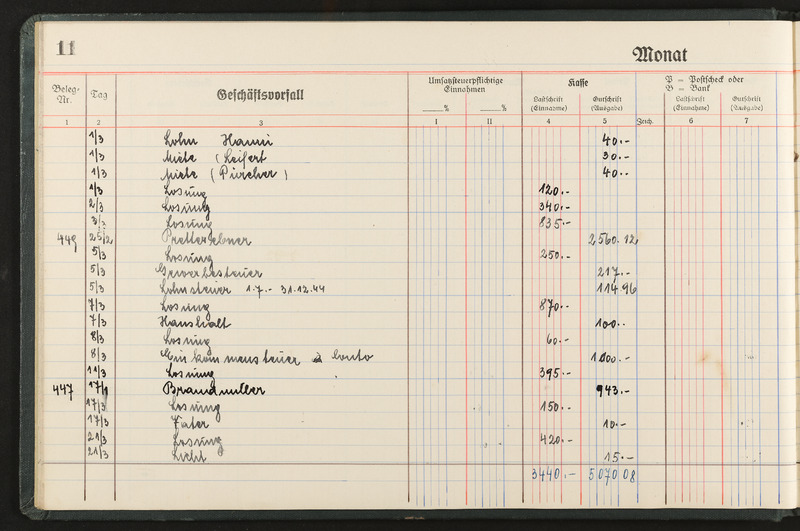 11
Monat
Beleg-Nr. Tag Geschäftsvorfall Umsatzsteuerpflichtige Einnahmen Kasse P = Postscheck oder B = Bank
% % Lastschrift (Einnahme) Gutschrift (Ausgabe) Zeich. Lastschrift (Einnahme) Gutschrift (Ausgabe)
1 2 3 I II 4 5 6 7
1/3 Lohn Hanni 40.-
1/3 Miete (Leifert 30.-
1/3 Miete (Pürcher) 40.-
1/3 Losung 120.-
2/3 Losung 340.-
3/3 Losung 835.-
449 25/2 2560.12
5/3 Losung 250.-
5/3 Gewerbesteuer 217.-
5/3 Lohnsteuer 1.7.- 31.12.44 114 96
7/3 Losung 870.-
7/3 Haushalt 100..
8/3 Losung 60.-
8/3 Einkommensteuer à Conto 1000.-
11/3 Losung 395.-
447 17/1 Brandmüller 943.-
17/3 Losung 150.-
17/3 Fater 10.-
21/3 Losung 420.-
21/3 Licht 15.-
3440.- 5070 08